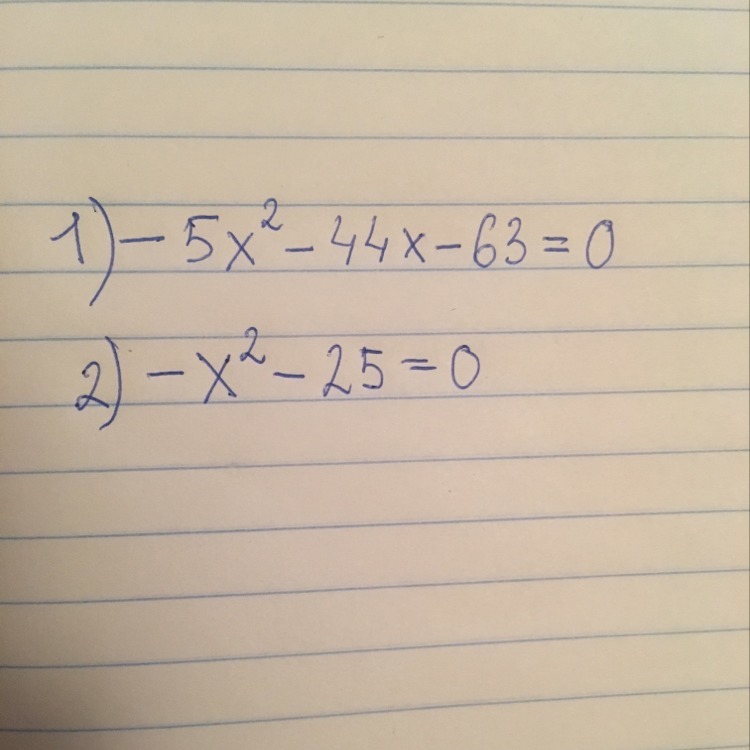 1) - 5x² - 44x - 63 = 0
2) - x² - 25 = 0